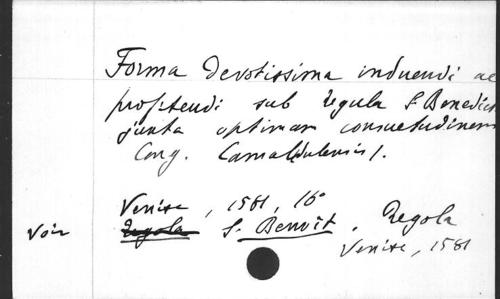 Forma devotissima induendi ac
profitendi sub regula S. Benedict
juxta optimam consuetudinem
Cong. Camaldulensis.
Venise, 1581, 16°
Voir Regola S. Benoît. Regola
Venise, 1581